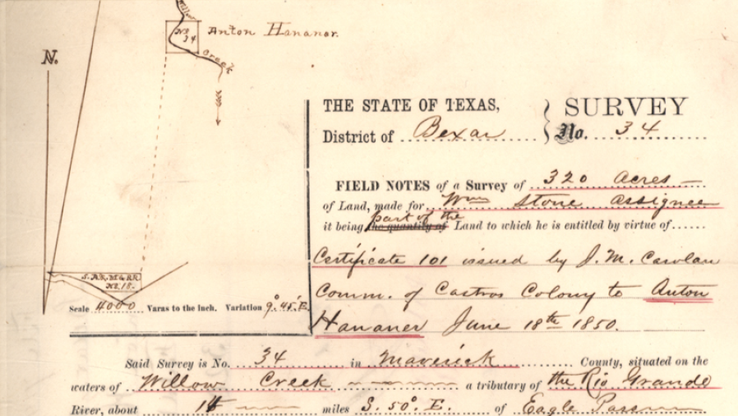 No
34
Anton Hananer.
Creek
N.
S.A.& M.G.RR
No. 18.
Scale 4000 Varas to the inch. Variation 9°.45'.E.
THE STATE OF TEXAS,
District of Bexar
SURVEY
No. 34
FIELD NOTES of a Survey of 320 Acres
of Land, made for Wm Stone assignee
part of the
it being the quantity of Land to which he is entitled by virtue of......
Certificate 101 issued by J. M. Carolan
Comm. of Castros Colony to Anton
Hananer June 18th 1850.
Said Survey is No. 34 in Maverick County, situated on the
waters of Willow Creek a tributary of the Rio Grande
River, about miles S. 50°. E. of Eagle Pass